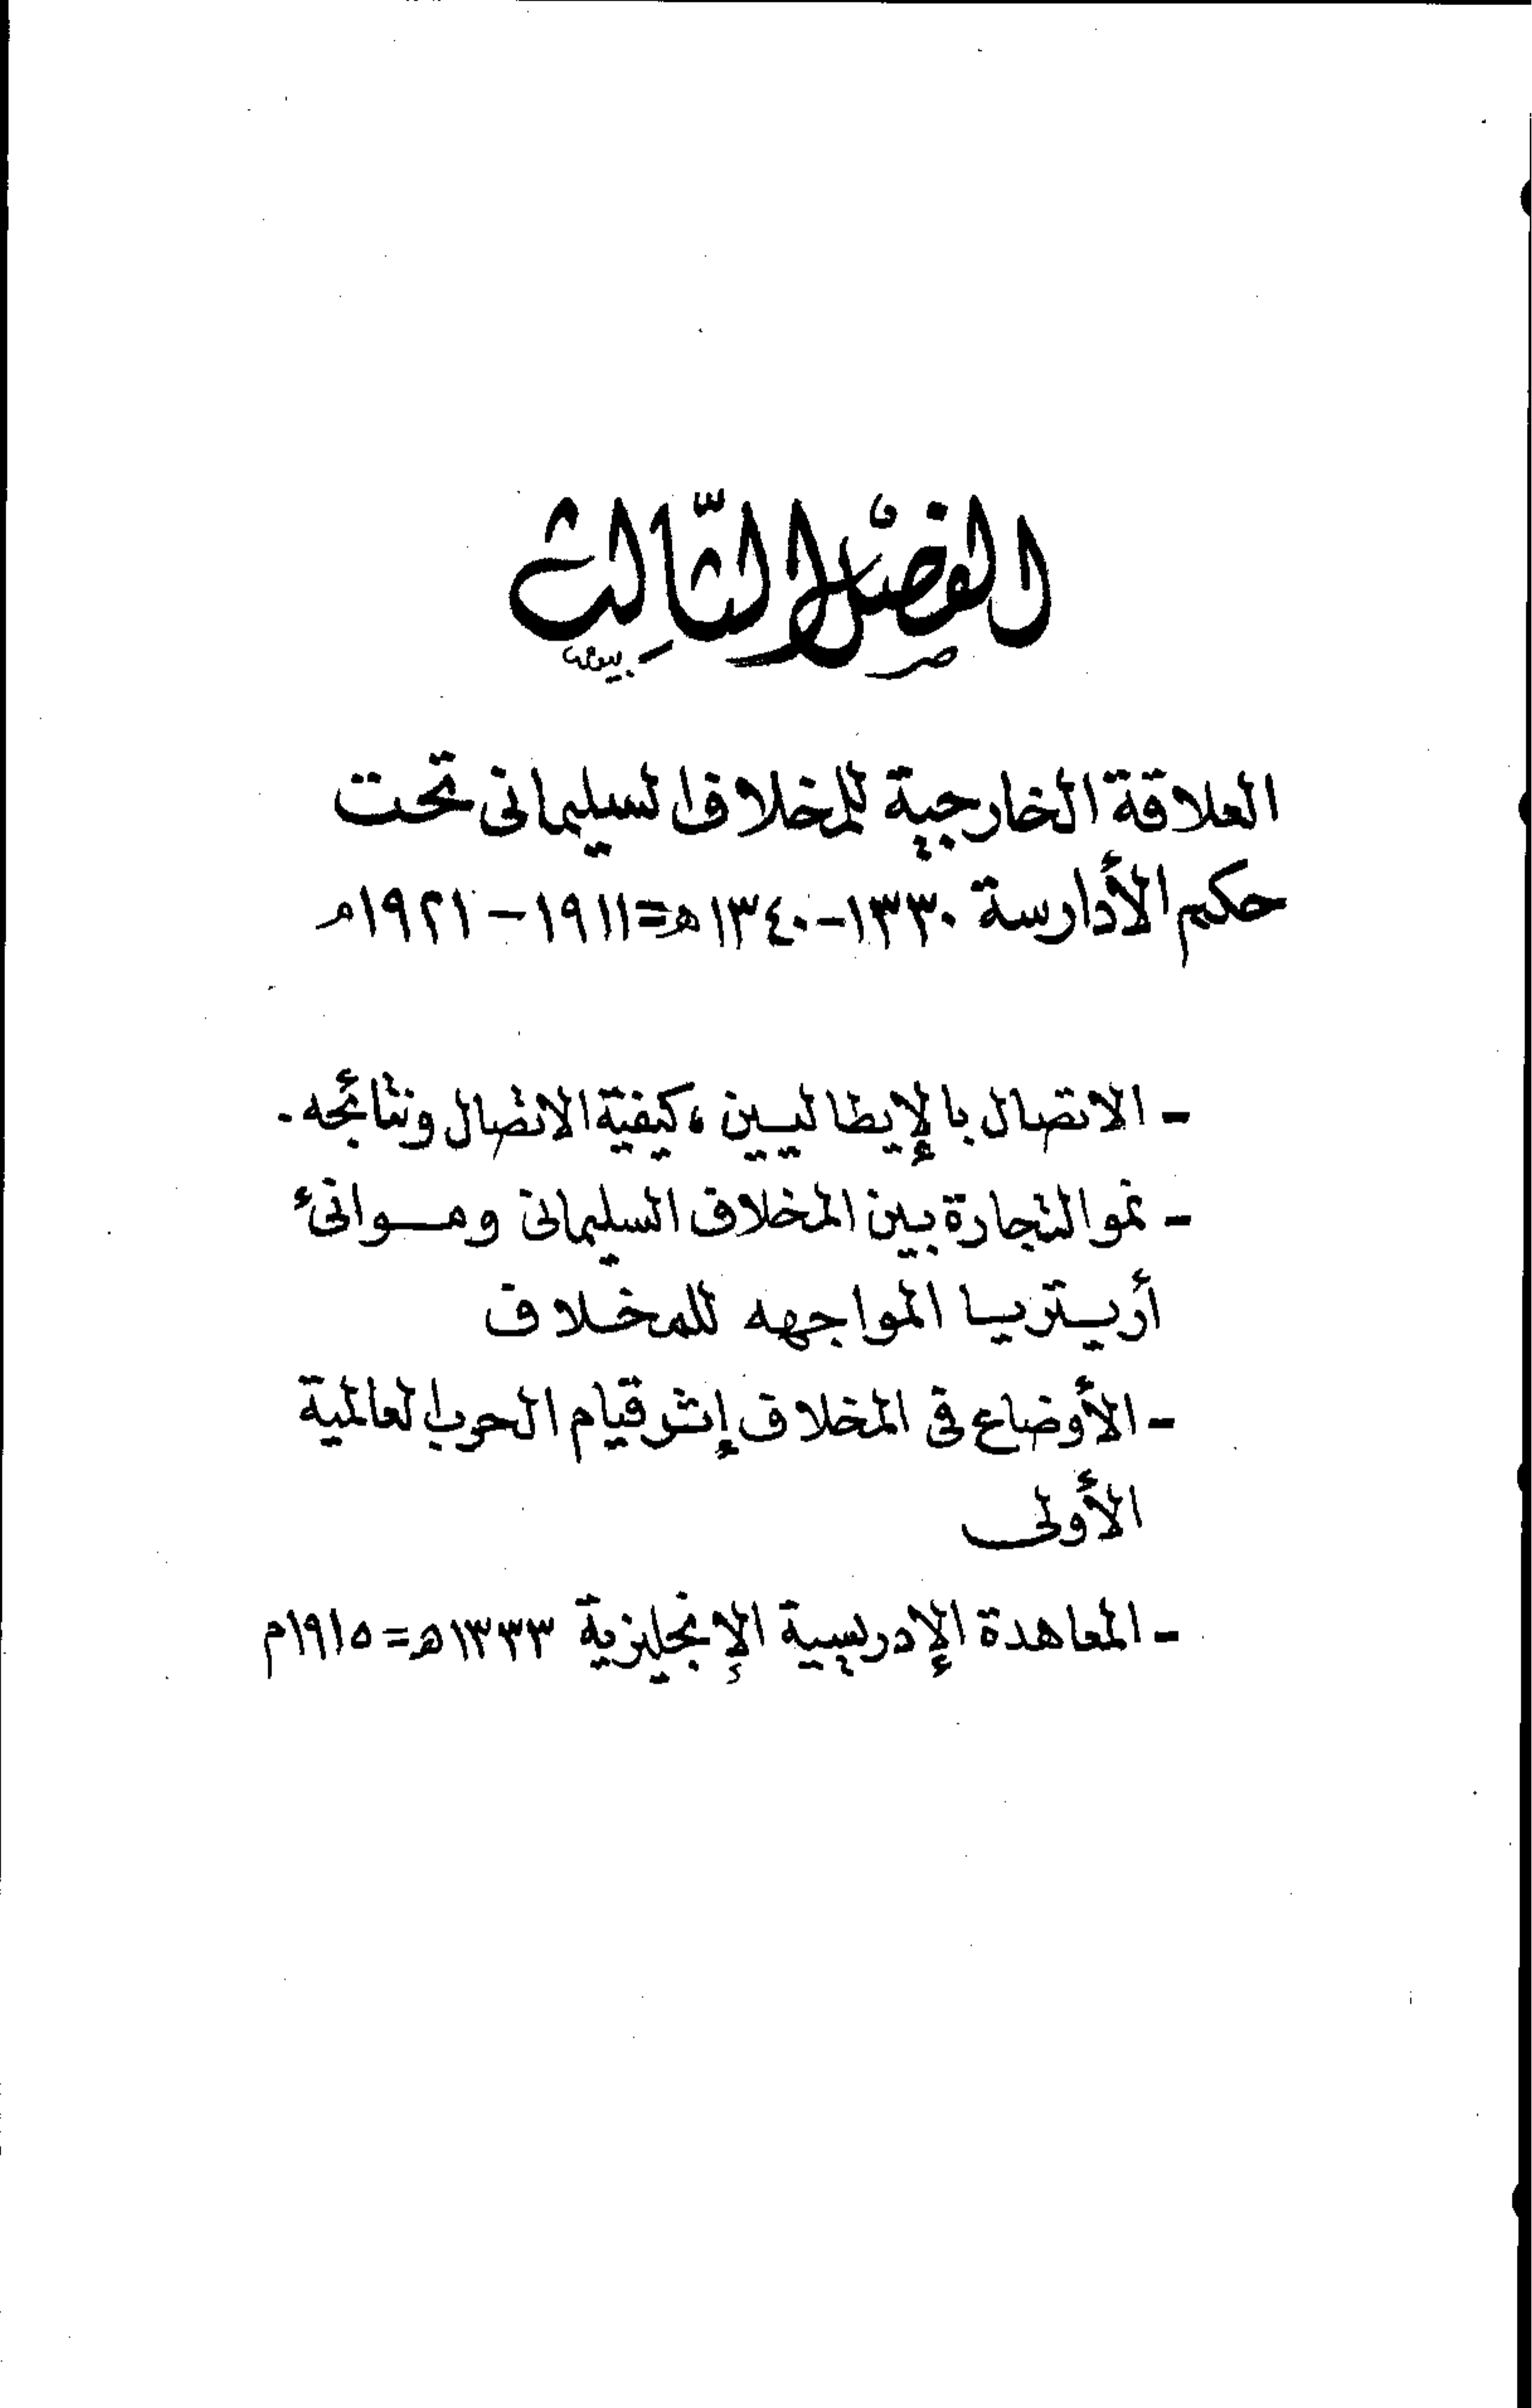 الفصل الثالث
العلاقة الخارجية للمخلاف السليمانى تحت
حكم الأدارسة ١٣٣٠-١٣٤٠هـ=١٩١١-١٩٢١م
- الاتصال بالإيطاليين، كيفية الاتصال ونتائجه.
- نمو التجارة بين المخلاف السليمانى ومـوانئ
أريـتريـا المواجهه للمخلاف
- الأوضاع فى المخلاف إثر قيام الحرب العالمية
الأولى
- المعاهدة الإدريسية الإنجليزية ١٣٣٣هـ=١٩١٥م